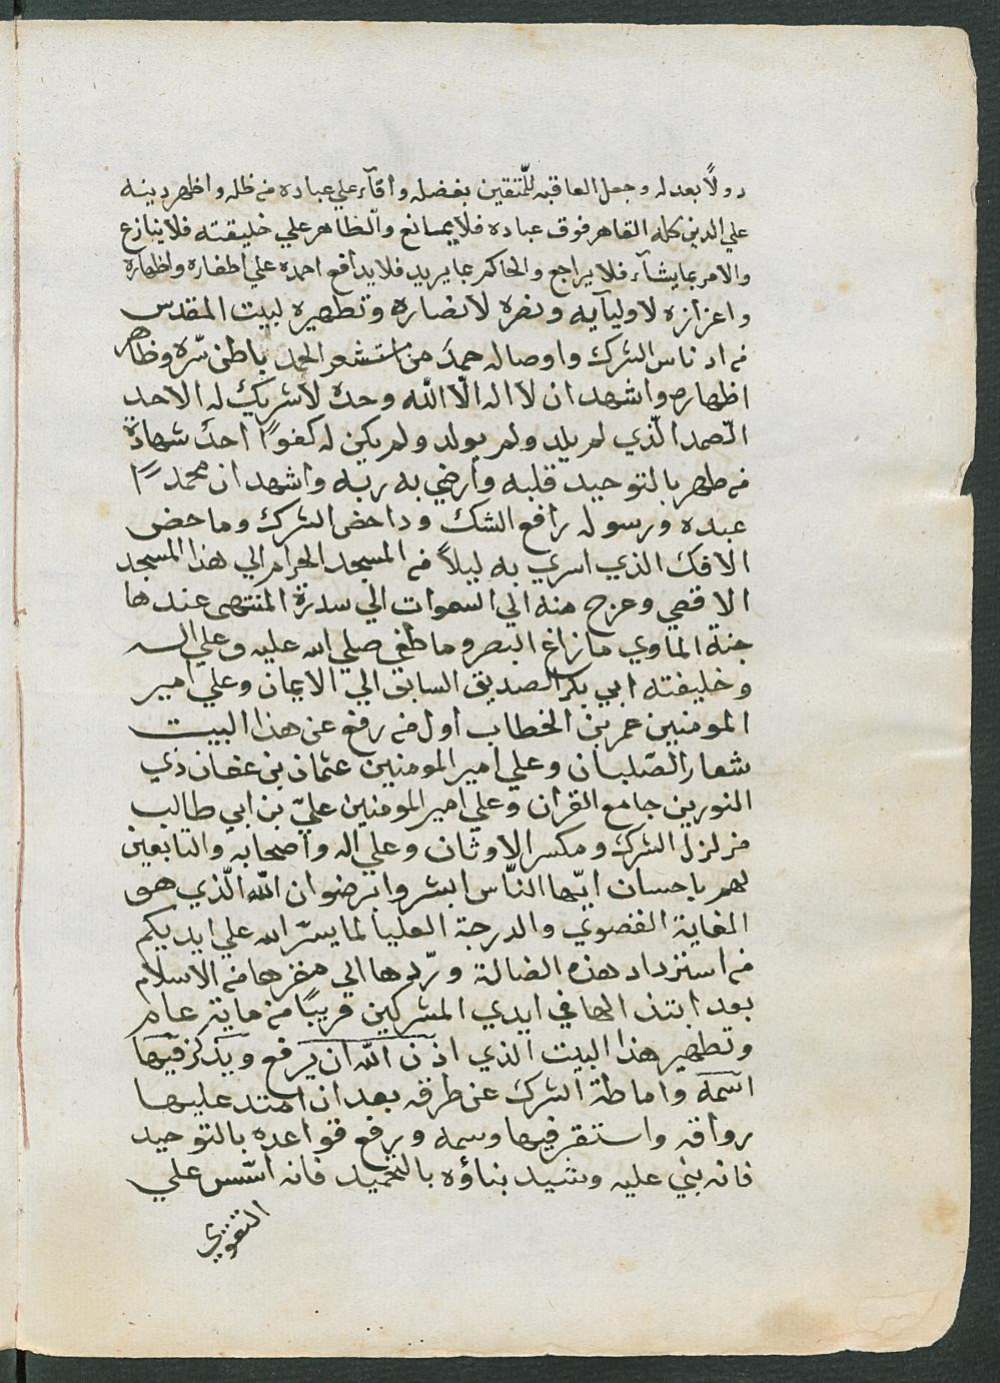 دولاً بعدله وجعل العاقبه للمّتقين بفضله وافآء علي عباده من ظله واظهر دينه
علي الدين كله القاهر فوق عباده فلا يمانع والظاهر علي خليقته فلا ينازع
والامر بما يشآء فلا يراجع والحاكم بما يريد فلا يدافع احمده علي اظفاره واظهاره
واعزازه لاوليآيه ونصره لانصاره وتطهيره لبيت المقدس
من ادناس الشرك واوصاله حمدَ من استشعر الحمد باطن سّره وظاهر
اظهاره واشهد ان لا اله الّا اللّه وحده لا شريك له الاحد
الصّمد الّذي لم يلد ولم يولد ولم يكن له كفوًا احدٌ شهادة
من طهر بالتوحيد قلبه وارضي به ربه واشهد ان محمدًا
عبده ورسوله رافع الشك وداحض الشرك وماحض
الافك الذي اسري به ليلاً من المسجد الحرام الي هذا المسجد
الاقصي وعرج منه الي السموات الي سدرة المنتهي عندها
جنة الماوي ما زاغ البصر وما طغي صلي الله عليه وعلي اله
وخليفته ابي بكر الصديق السابق الي الايمان وعلي امير
المومنين عمر بن الخطاب اول من رفع عن هذا البيت
شعار الصّلبان وعلي امير المومنين عثمان بن عفان ذي
النورين جامع القران وعلي امير المومنين عليّ بن ابي طالب
مزلزل الشرك ومكسر الاوثان وعلي اله واصحابه والتابعين
لهم باحسان ايّها النّاس ابشروا برضوان اللّه الّذي هو
الغاية القصوي والدرجة العليا لما يسّر الله علي ايديكم
من استرداد هذه الضالة وردّها الي مقرها من الاسلام
بعد ابتذالها في ايدي المشركين قريبًا من ماية عام
وتطهير هذا البيت الذي اذن اللّه ان يرفع ويذكر فيها
اسمه واماطة الشرك عن طرقه بعد ان امتد عليها
رواقه واستقر فيها وسمه ورفع قواعده بالتوحيد
فانه بني عليه وشيد بناؤه بالتحميد فانه اسّس علي
التقوي